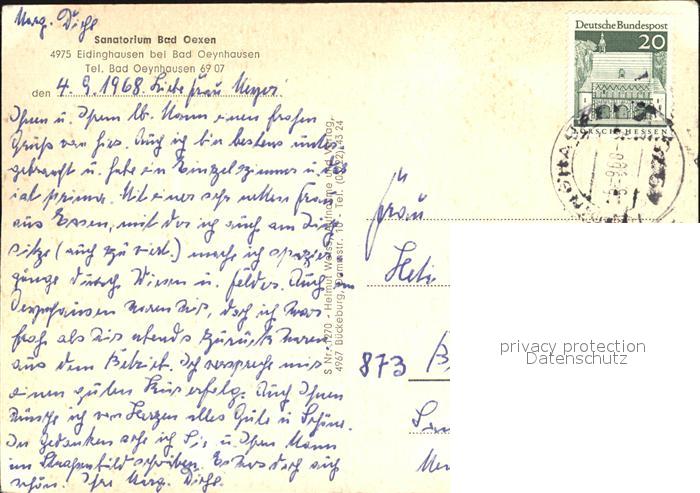 Marg. Diehl
Sanatorium Bad Oexen
4975 Eidinghausen bei Bad Oeynhausen
Tel. Bad Oeynhausen 69 07
den 4.9.1968. Liebe Frau Meyer
Ihnen u. Ihrem lb. Mann einen frohen
Gruß von hier. Auch ich bin bestens unter
gebracht u. habe ein Einzelzimmer u. ist
prima. Mit einer sehr netten Frau
aus Essen, mit der ich auch am Tisch
sitze (auch zu viert) mache ich spazier
gänge durch Wiesen u. Felder. Auch
Oeynhausen waren wir, doch ich war
froh als wir abends zurück waren
aus dem Betrieb. Ich verspreche mir
einen guten Kurerfolg. Auch Ihnen
wünsche ich von Herzen alles Gute u. Schöne.
In Gedanken sehe ich Sie u. Ihren Mann
im Straßenbild schreiben. Es war doch auch
schön. Ihre Marg. Diehl.
S Nr. 1270 - Helmut Weiss, Aufnahme und Verlag,
4967 Bückeburg, 110 - Tel. 43 24
Deutsche Bundespost
20
LORSCH/HESSEN
Frau
873
privacy protection
Datenschutz